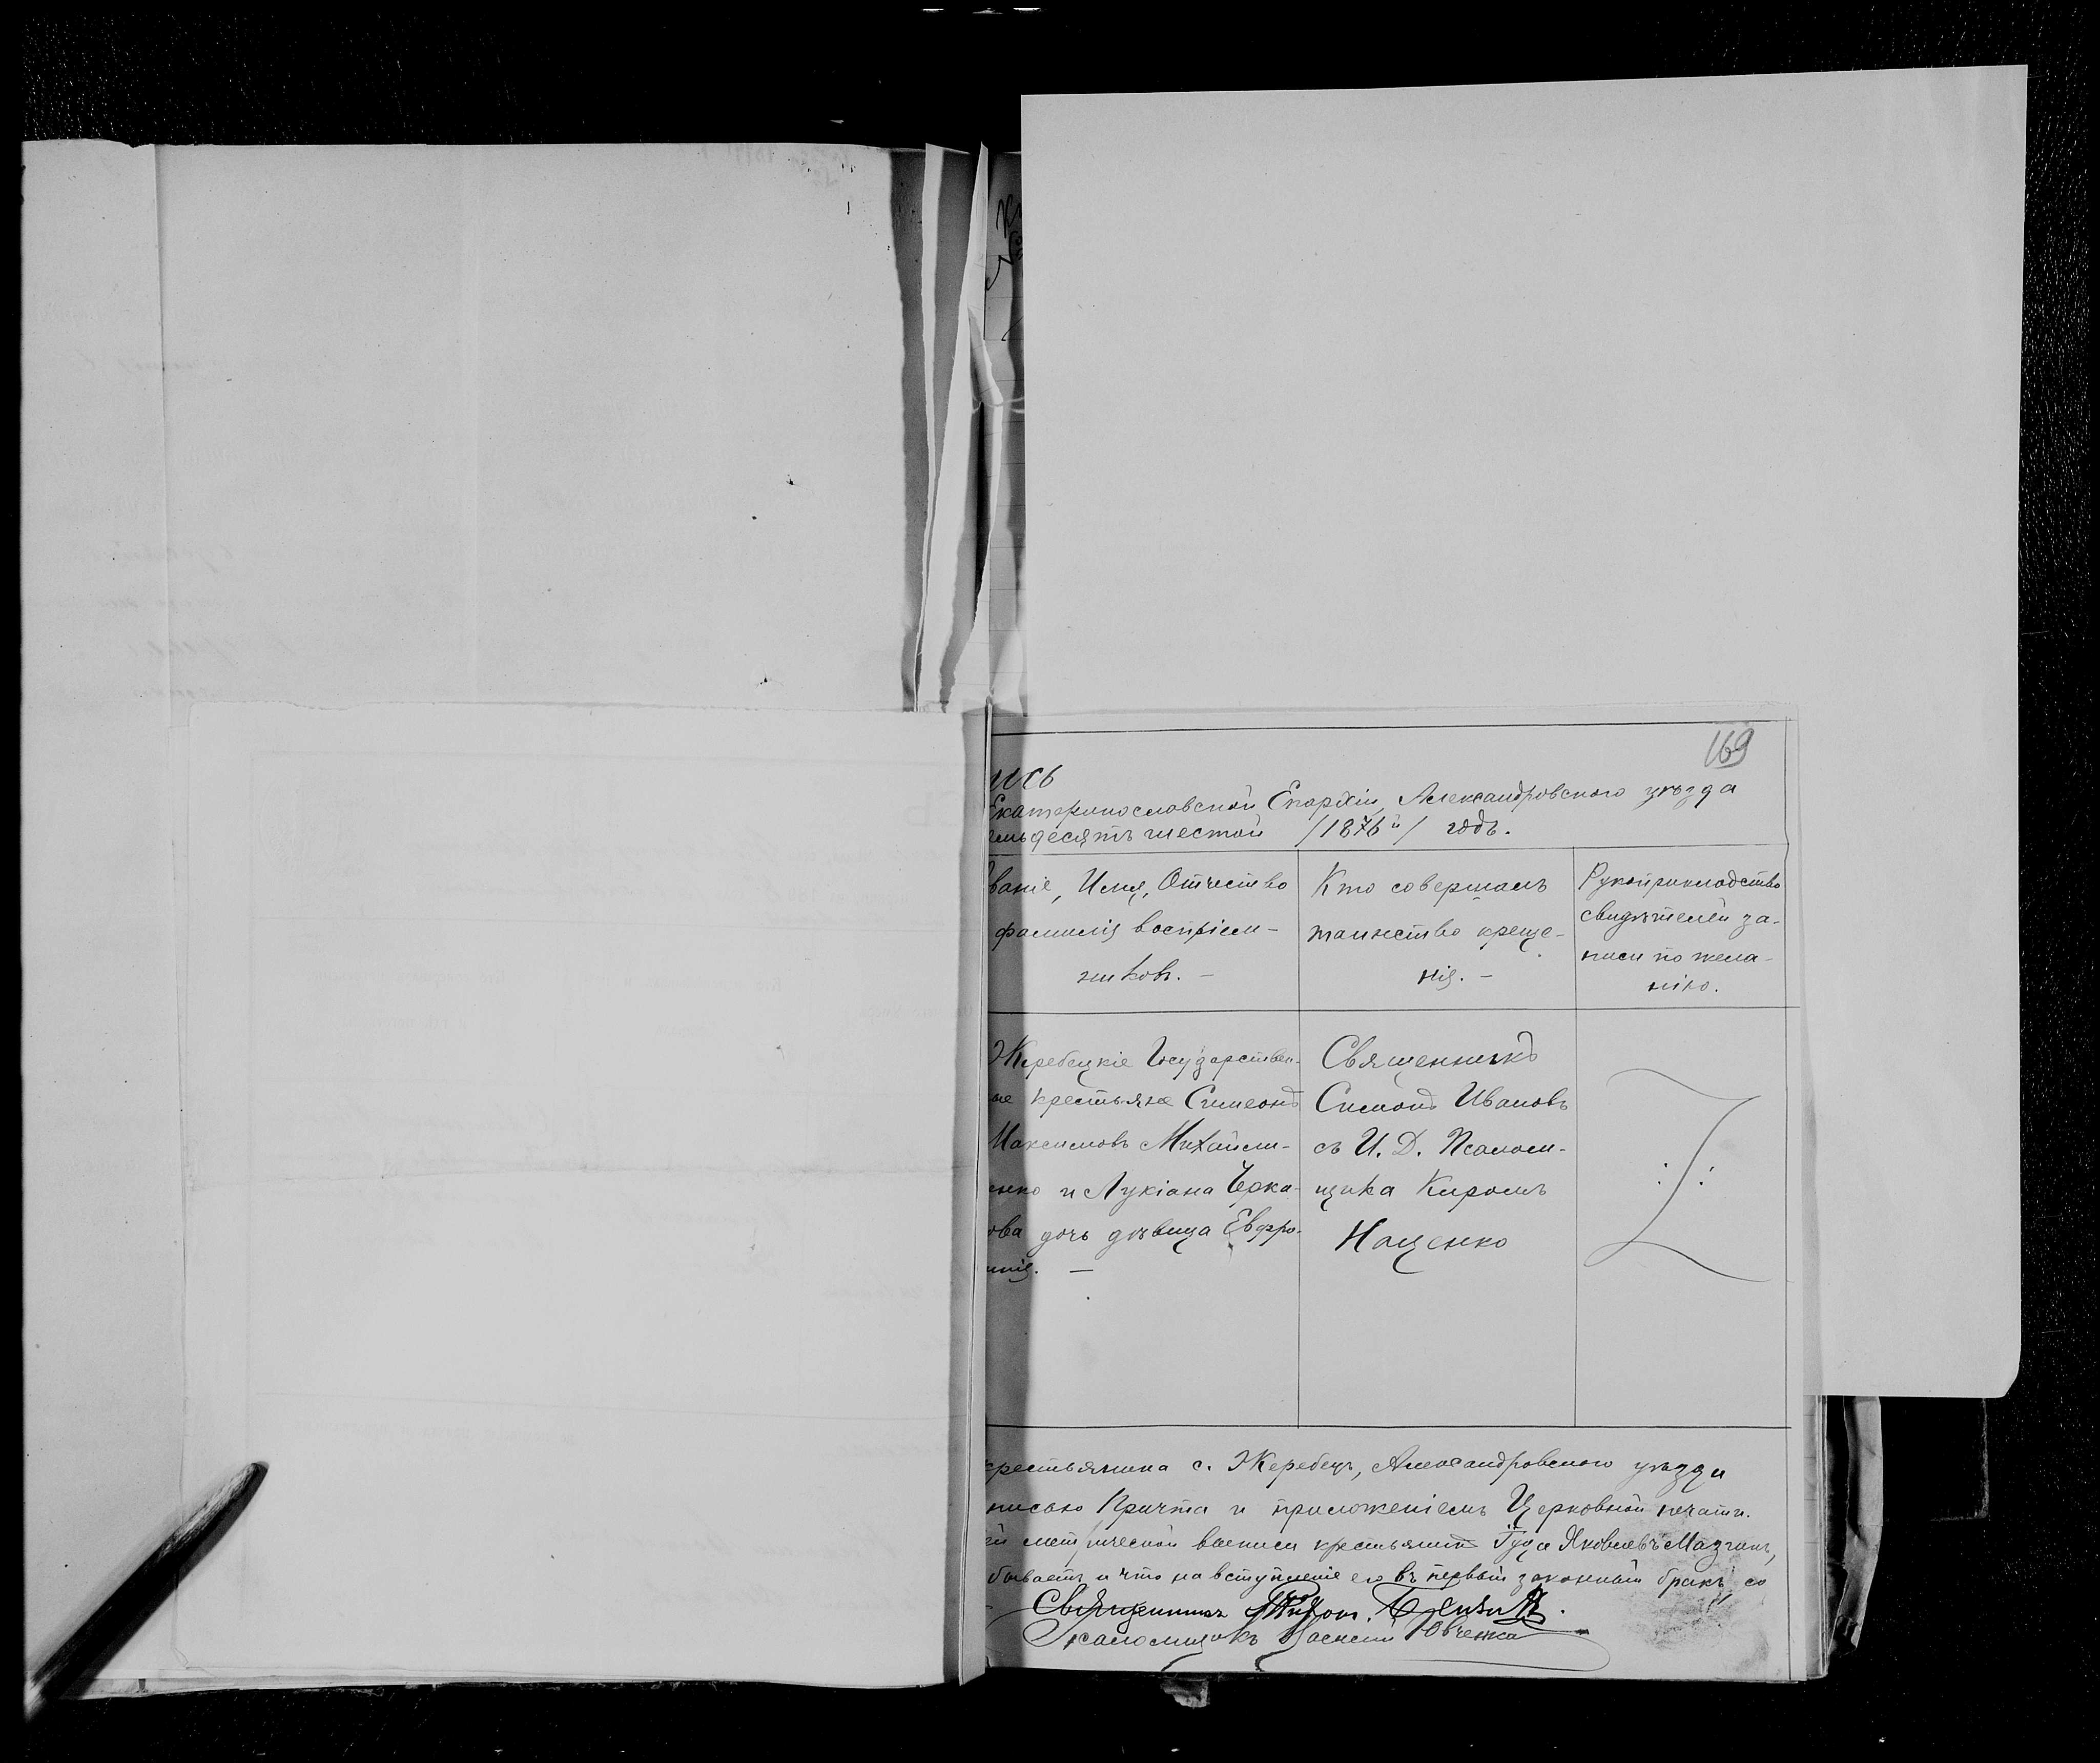 169
ись
Екатеринославской Епархіи, Александровскаго уѣзда
емьдесятъ шестой /1876й/ годъ.
Званіе, Имя, Отчество
фамилія воспріем-
никовъ. –
Кто совершалъ
таинство креще-
нія. –
Рукоприкладство
свидѣтелей за-
писи по жела-
нію.
Жеребецкіе Государствен-
ые крестьяне Симеонъ
Максимовъ Михайли-
енко и Лукіана Черка-
ова дочь дѣвица Евфро-
инія. –
Священникъ
Симонъ Ивановъ
съ И. Д. Псалом-
щика Кирилъ
Нащенко
крестьянина с. Жеребецъ, Александровскаго уѣзда
писью Причта и приложеніемъ Церковной печати.
ей метрической выписи крестьянинъ Іуда Яковлевъ Мазчинъ,
бываетъ и что на вступленіе его въ первый законный бракъ со
Священникъ Тихон.
Псаломщикъ Василій Ювченко